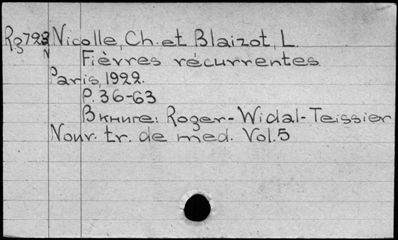 Rg723 Nicolle, Ch. et Blaizot, L.
N Fièvres récurrentes
Paris, 1922.
P. 36-63
В книге: Roger-Widal-Teissier
Nouv. tr. de med. Vol. 5